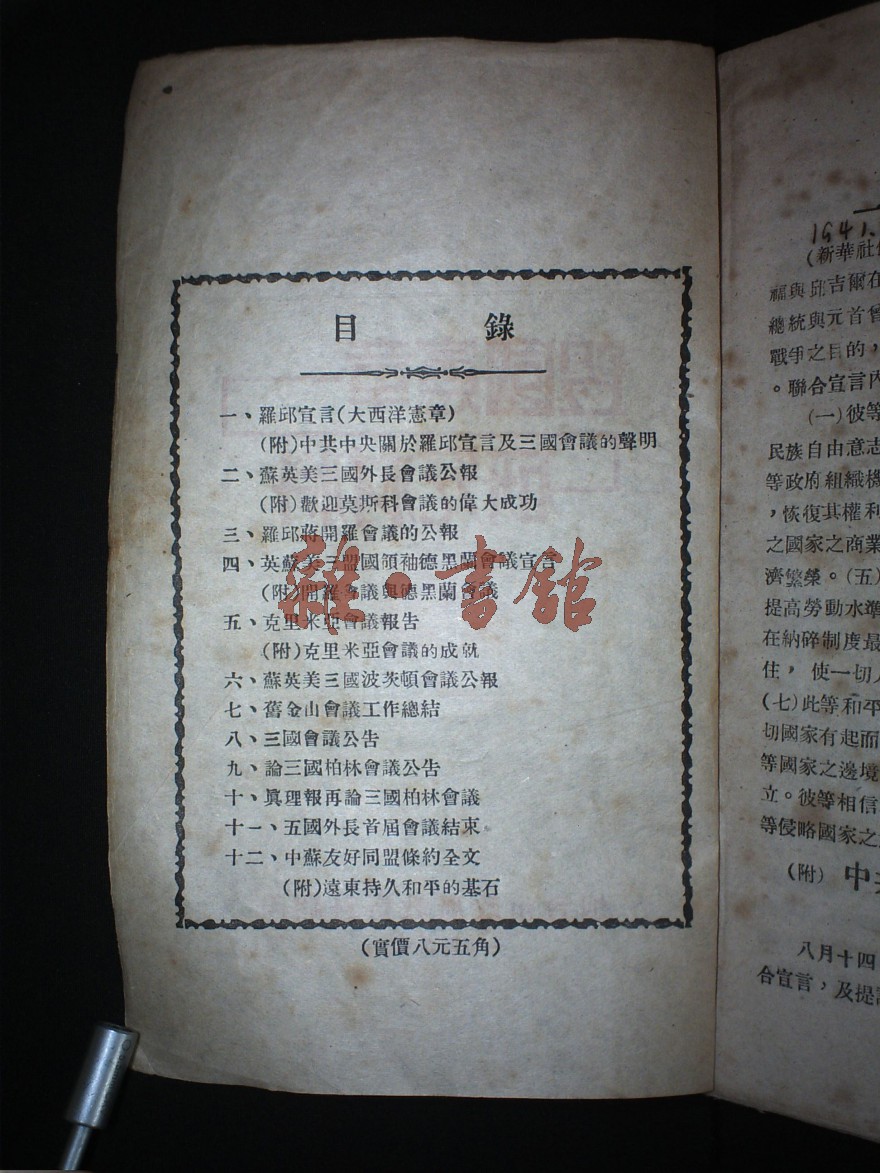 目錄
一、羅邱宣言(大西洋憲章)
(附)中共中央關於羅邱宣言及三國會議的聲明
二、蘇英美三國外長會議公報
(附)歡迎莫斯科會議的偉大成功
三、羅邱蔣開羅會議的公報
四、英蘇美三盟國領袖德黑蘭會議宣言
(附)開羅會議與德黑蘭會議
五、克里米亞會議報告
(附)克里米亞會議的成就
六、蘇英美三國波茨頓會議公報
七、舊金山會議工作總結
八、三國會議公告
九、論三國柏林會議公告
十、眞理報再論三國柏林會議
十一、五國外長首屆會議結束
十二、中蘇友好同盟條約全文
(附)遠東持久和平的基石
(實價八元五角)
雜·書館
1941.
(新華社
福與邱吉爾在
總統與元首會
戰爭之目的，
。聯合宣言內
(一)彼等
民族自由意志
等政府組織機
，恢復其權利
之國家之商業
濟繁榮。(五)
提高勞動水準
在納碎制度最
住，使一切人
(七)此等和平
切國家有起而
等國家之邊境
立。彼等相信
等侵略國家之
(附)中共
八月十四
合宣言，及提